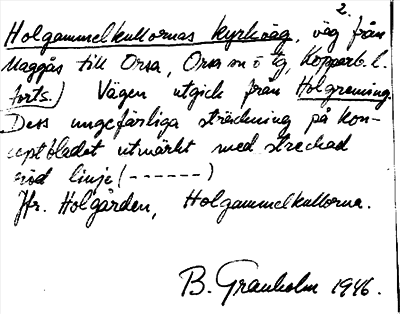 2.
Holgammelkullornas kyrkväg, väg från
Maggås till Orsa, Orsa sn o tg, Kopparb. l.
forts.) Vägen utgick från Holgrening.
Dess ungefärliga sträckning på kon-
ceptbladet utmärkt med streckad
röd linje (------)
Jfr. Holgården, Holgammelkullorna.
B. Granholm 1946.